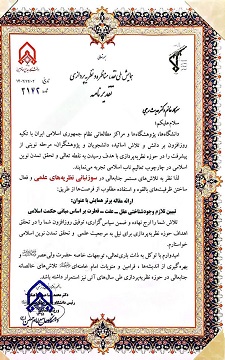 همایش ملی نقد، مناظره و نظریه‌پردازی
تقدیرنامه
۲۱۷۲
سلام علیکم؛
دانشگاه‌ها، پژوهش‌ها و مراکز مطالعاتی نظام جمهوری اسلامی ایران با تکیه
روزافزون بر دانش و تلاش اساتید، دانشجویان و پژوهشگران، مرحله نوینی از
پیشرفت را در حوزه نظریه‌پردازی با هدف رسیدن به نقطه تعالی و تحقق تمدن نوین
اسلامی در چارچوب تعالیم ناب اسلامی تجربه می‌نمایند.
لذا نظر به تلاش‌های مستمر جنابعالی در سوزنبانی نظریه‌های علمی و فعال
ساختن ظرفیت‌های بالقوه و استفاده مطلوب از فرصت‌ها از طریق:
ارائه مقاله برتر همایش با عنوان:
تبیین لازم وجود شناختی عقل ـ عفت ـ فطرت بر اساس مبانی حکمت اسلامی
تلاش شما را ارج نهاده و ضمن سپاس‌گزاری، توفیق روزافزون شما را در تحقق
اهداف حوزه نظریه‌پردازی برای نیل به مرجعیت علمی و تحقق تمدن نوین اسلامی
خواستارم.
امیدوارم با توکل به ذات باری‌تعالی، توجهات خاصه حضرت ولی‌عصر
بهره‌گیری از اندیشه‌ها، فرامین و منویات امام خامنه‌ای تلاش‌های خالصانه
جنابعالی در حوزه نظریه‌پردازی طی سال‌های آتی نیز استمرار داشته باشد.